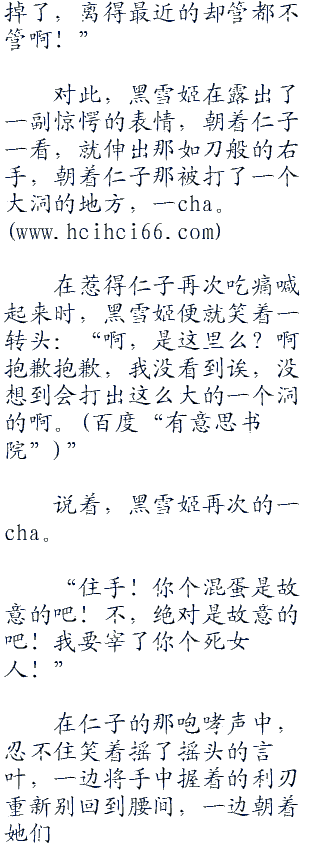 掉了，离得最近的却管都不
管啊！”
对此，黑雪姬在露出了
一副惊愕的表情，朝着仁子
一看，就伸出那如刀般的右
手，朝着仁子那被打了一个
大洞的地方，一cha。
(www.hcihci66.com)
在惹得仁子再次吃痛喊
起来时，黑雪姬便就笑着一
转头：“啊，是这里么？啊
抱歉抱歉，我没看到诶，没
想到会打出这么大的一个洞
的啊。(百度“有意思书
院”)”
说着，黑雪姬再次的一
cha。
“住手！你个混蛋是故
意的吧！不，绝对是故意的
吧！我要宰了你个死女
人！”
在仁子的那咆哮声中，
忍不住笑着摇了摇头的言
叶，一边将手中握着的利刃
重新别回到腰间，一边朝着
她们